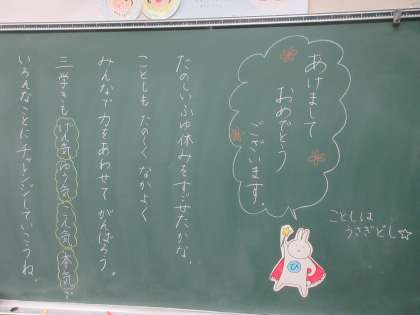 あけまして
おめでとう
ございます。
ことしは
うさぎどし☆
たのしいふゆ休みをすごせたかな。
ことしも たの〜く なかよく
みんなで 力をあわせて がんばろう。
三学きも げん気 やる気 こん気 本気で
いろんなことに チャレンジしていこうね。